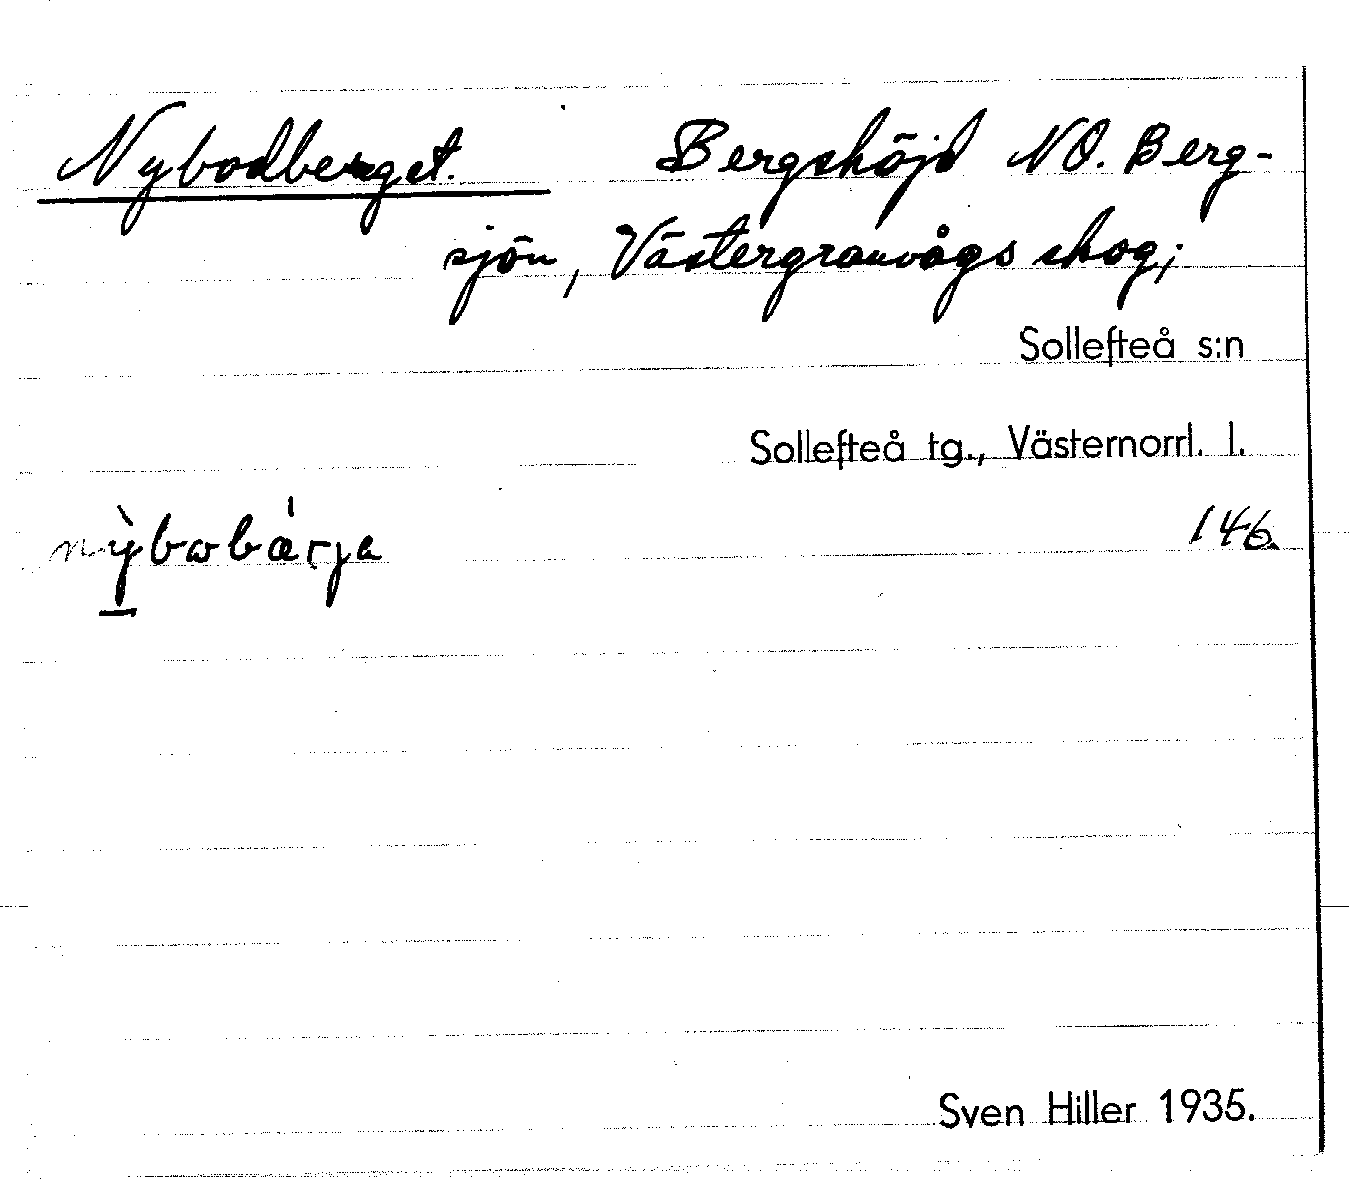 Nybodberget. Bergshöjd NO. Berg-
sjön, Västergranvågs skog;
Sollefteå s:n
Sollefteå tg., Västernorrl. l.
nỳbobærja 146.
Sven Hiller 1935.